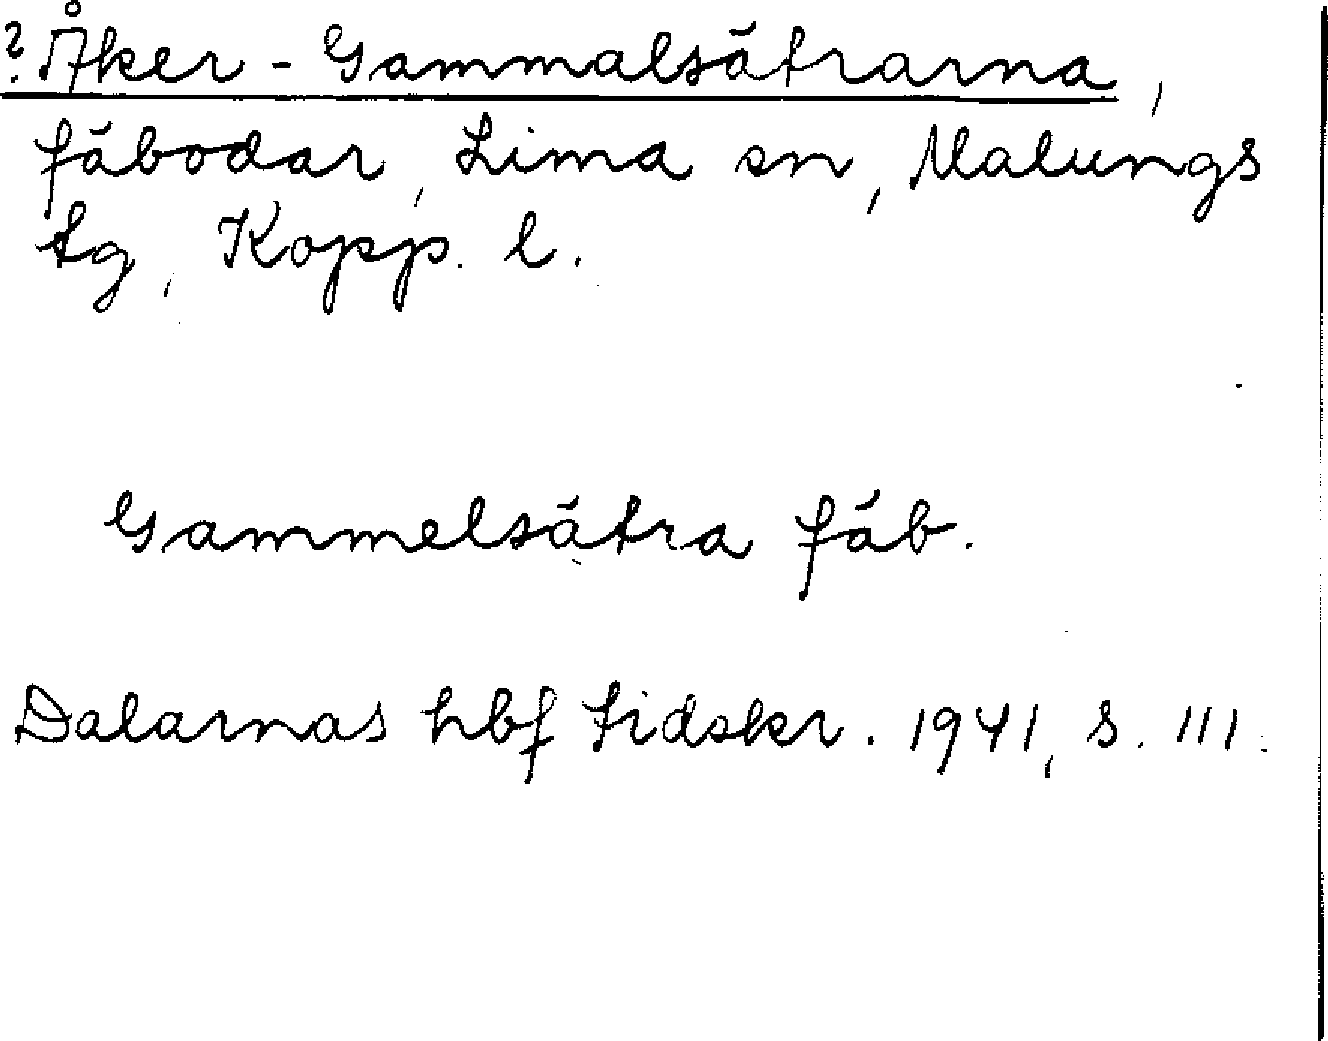 ? Åker-Gammalsätrarna,
fäbodar, Lima sn, Malungs
tg, Kopp. l.
Gammelsätra fäb.
Dalarnas hbf tidskr. 1941, s. 111.